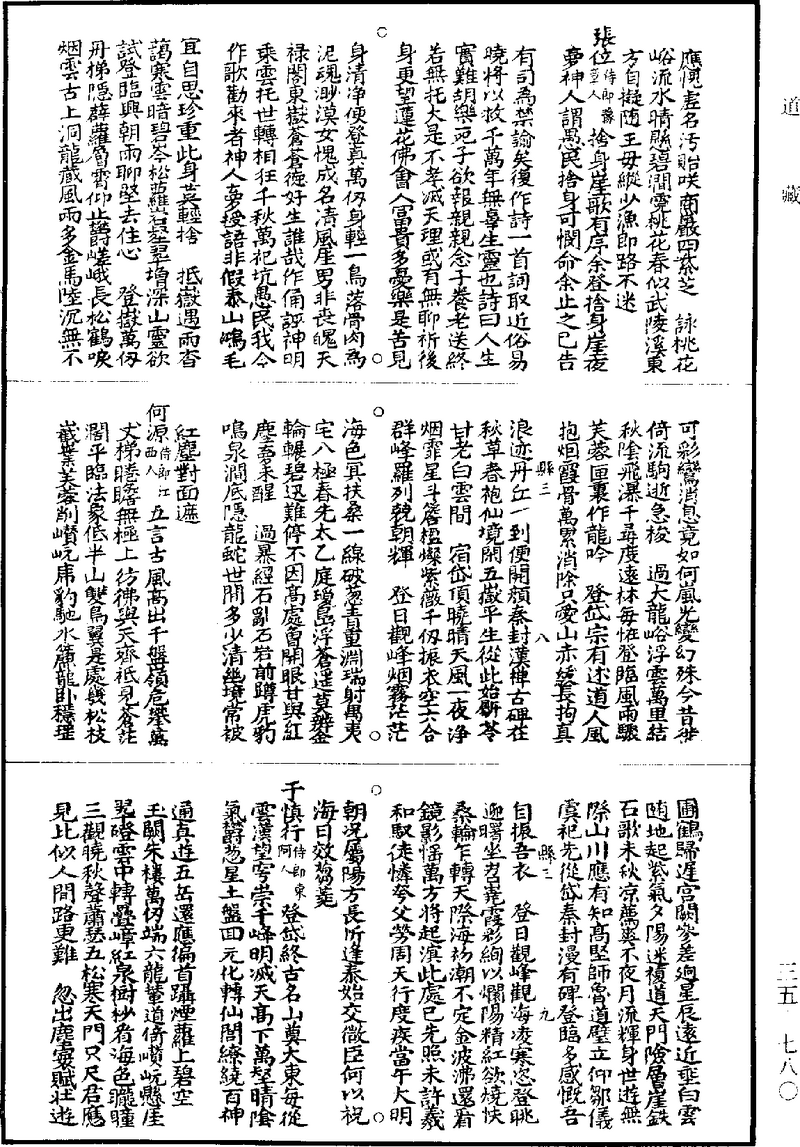 道藏
三五·七八〇
應愧虛名汚貽咲商巖四紫芝　詠桃花
峪流水晴懸碧澗霓桃花春似武陵溪東
方自擬随王母縱少漁郎路不迷
張位侍郎豫章人捨身崖歌有序余登捨身崖夜
夢神人謂愚民捨身可憫命余止之已告
有司為禁諭矣復作詩一首詞取近俗易
曉將以救千萬年無辜生靈也詩曰人生
實難胡樂死子欲報親親念子養老送終
若無托大是不孝滅天理或有無聊祈後
身更望蓮花佛會人富貴多憂樂是苦見
身清净便登真萬仞身輕一鳥落骨肉為
泥魂渺漠女愧成名清風崖男非喪魄天
禄閣東嶽蒼蒼德好生誰哉作俑誣神明
乘雲托世轉相狂千秋萬祀坑愚民我今
作歌勸來者神人夢授語非假泰山鴻毛
宜自思珍重此身莫輕捨　抵嶽遇雨杳
藹寒雲暗碧岑松蘿岩壑翠增深山靈欲
試登臨興朝雨聊堅去住心　登嶽萬仞
丹梯隱薜蘿層霄仰止欝嵯峨長松鶴唳
烟雲古上洞龍藏風雨多金馬陸沉無不
可彩鸞消息竟如何風光變幻殊今昔徙
倚流駒逝急梭　過大龍峪浮雲萬里結
秋陰飛瀑千尋度遠林每恠登臨風雨驟
芙蓉匣裏作龍吟　登岱宗有述道人風
抱烟霞骨萬累消除只愛山赤綬長拘真
縣三
八
浪迹丹丘一到便開顏秦封漢樺古碑在
秋草春袍仙境閑五嶽平生從此始斸苓
甘老白雲間　宿岱頂曉晴天風一夜净
烟霏星斗簷楹燦紫薇千仞振衣空六合
群峰羅列競朝輝　登日觀峰烟霧茫茫
海色冥扶桑一線破葱青重淵瑞射萬夷
宅八極春先太乙庭瓊島浮蒼逞莫辨金
輪輾碧迅難停不因高處曾開眼甘與紅
塵醉未醒　過暴經石亂石岩前蹲虎豹
鳴泉澗底隱龍蛇世間多少清幽境常被
紅塵對面遮
何源侍郎江西人五言古風高出千盤嶺危攀萬
丈梯瞻瞻無極上彷彿與天齊祗見蒼茫
濶平臨法象低半山雙鳥翼是處幾松枝
巀嶪芙蓉削巑岏席豹馳水簾龍卧穩理
圃鶴歸遲宫闕參差逈星辰遠近垂白雲
随地起紫氣夕陽迷複道天門險層崖鉄
石歌未秋凉薦爽不夜月流輝身世遊無
際山川應有知高堅師魯道壁立仰鄒儀
虞祀先從岱秦封漫有碑登臨多感慨吾
縣三
九
自振吾衣　登日觀峰觀海凌寒恣登眺
迎曙坐岧嶤霞彩絢以爛陽精紅欲燒快
桑輪乍轉天際海初潮不定金波沸還看
鏡影搖萬方將起滇此處已先照未許羲
和馭徒憐夸父勞周天行度疾當午大明
朝況屬陽方長忻逢泰始交微臣何以祝
海日效蒭蕘
于慎行侍郎東阿人登岱終古名山奠大東每從
雲漢望穹崇千峰明滅天高下萬壑晴陰
氣欝葱星土盤回元化轉仙閭繚繞百神
通真遊五岳還應徧首躡煙蘿上碧空
玉闕朱欞萬仞端六龍輦道倚巑岏懸崖
翠磴雲中轉疊嶂紅泉樹杪看海色曨曈
三觀曉秋聲蕭瑟五松寒天門只尺君應
見比似人間路更難　忽出塵寰賦壯遊